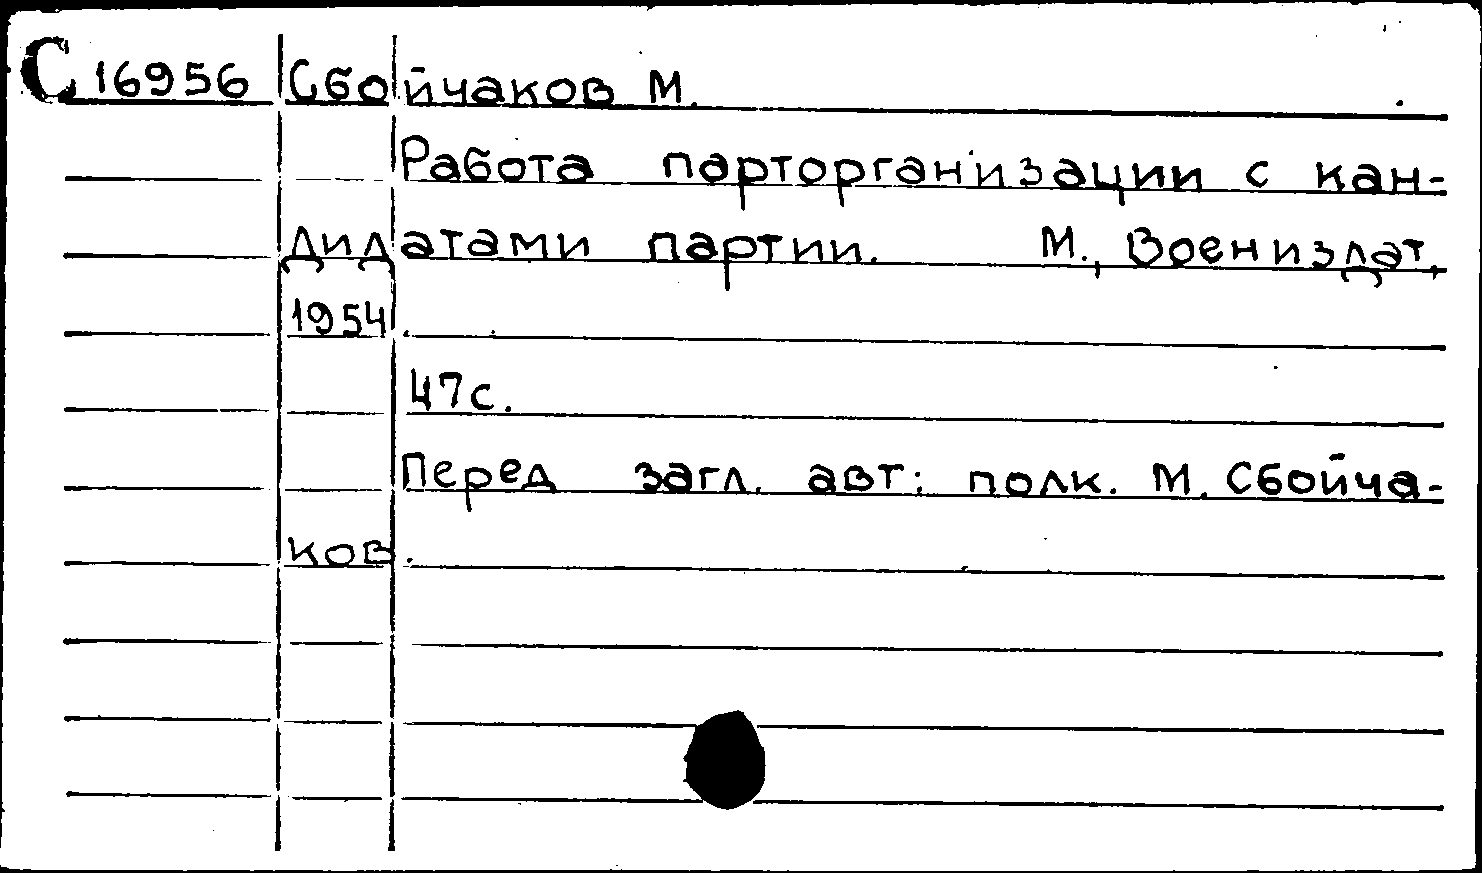 С 16956 Сбойчаков М.
Работа парторганизации с кан-
дидатами партии. М., Воениздат,
1954.
47с.
Перед загл. авт: полк. М. Сбойча-
ков.